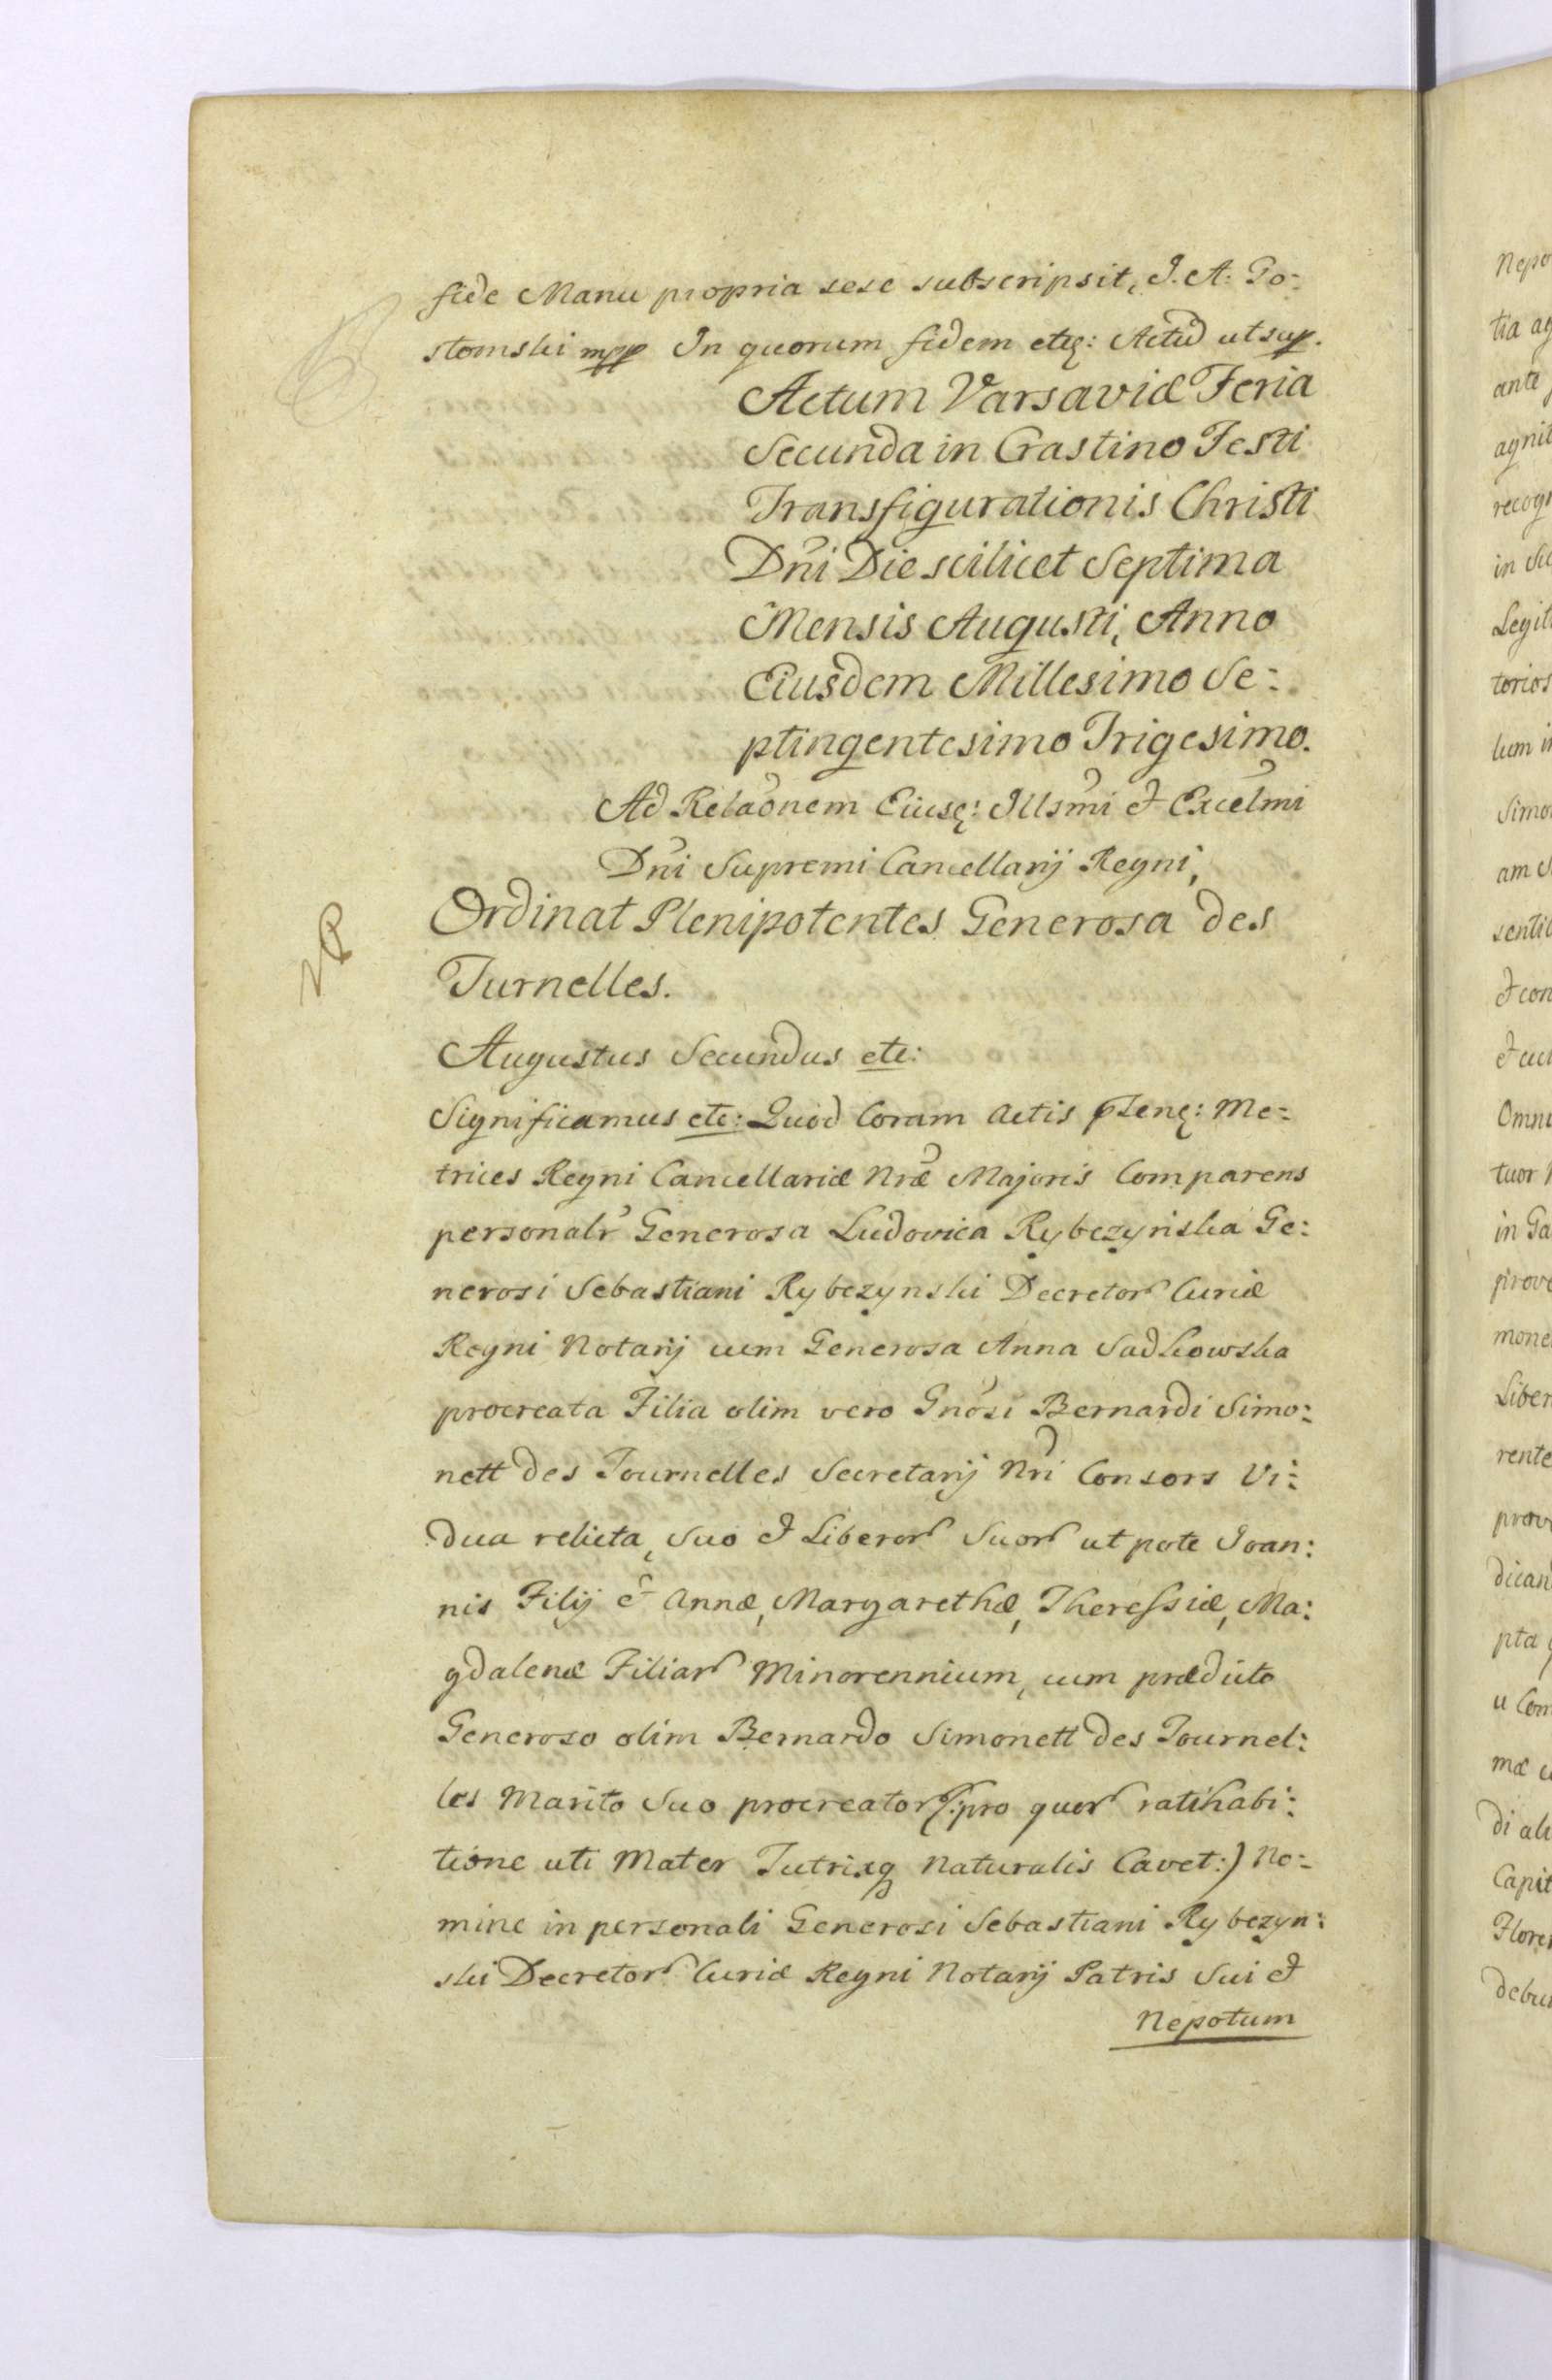 fide Manu propria sese subscripsit, J. A: Go:
stomski mpp In quorum fidem etc: Actū ut sup.
Actum Varsaviæ Feria
Secunda in Crastino Festi
Transfigurationis Christi
Dñi Die scilicet Septima
Mensis Augusti, Anno
Eiusdem Millesimo Se:
ptingentesimo Trigesimo.
Ad Relãonem Eiusꝗ: Illsmi et Excelmi
Dñi Supremi Cancellarij Regni,
Ordinat Plenipotentes Generosa des
Turnelles.
Augustus Secundus etc:
Significamus etc: Quod Coram Actis pſenꝗ: Me:
trices Regni Cancellariæ Nræ Majoris Comparens
personalr Generosa Ludovica Rybczyńska Ge:
nerosi Sebastiani Rybczynski Decretor Curiæ
Regni Notarij cum Generosa Anna Sadkowska
procreata Filia olim vero Gnosi Bernardi Simo:
nett des Tournelles Secretarij Nri Consors Vi:
dua relicta, Suo et Liberor Suor ut pote Joan:
nis Filij et Annæ, Margarethæ, Theressiæ, Ma:
gdalenæ Filiar Minorennium, cum prædicto
Generoso olim Bernardo Simonett des Tournel:
les Marito Suo procreator (:pro quor ratihabi:
tione uti Mater Tutrixq Naturalis Cavet:) No:
mine in personali Generosi Sebastiani Rybczyn:
ski Decretor Curiæ Regni Notarij Patris Sui et
Nepotum